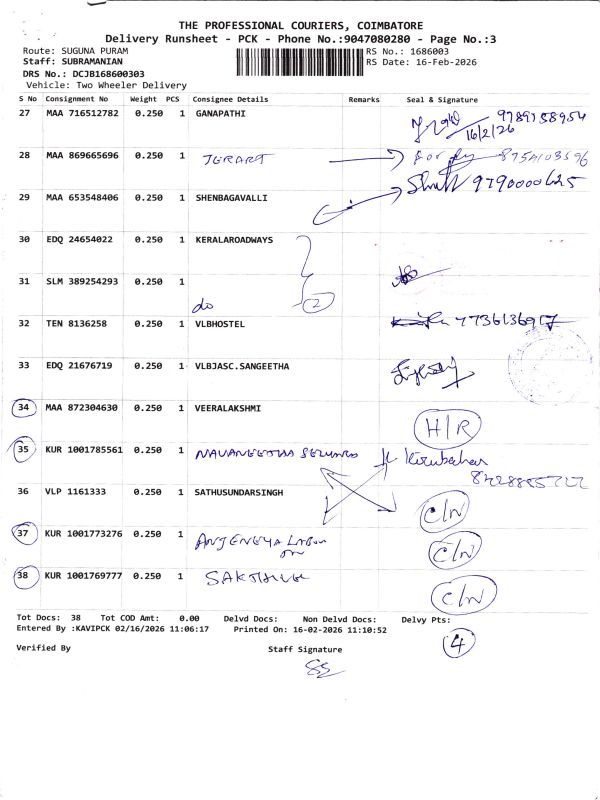 THE PROFESSIONAL COURIERS, COIMBATORE
Delivery Runsheet - PCK - Phone No.:9047080280 - Page No.:3
Route: SUGUNA PURAM RS No.: 1686003
Staff: SUBRAMANIAN RS Date: 16-Feb-2026
DRS No.: DCJB168600303
Vehicle: Two Wheeler Delivery
S No Consignment No Weight PCS Consignee Details Remarks Seal & Signature
27 MAA 716512782 0.250 1 GANAPATHI 9789158954
16/2/26
28 MAA 869665696 0.250 1 JERART 8754103596
29 MAA 653548406 0.250 1 SHENBAGAVALLI 9790000625
30 EDQ 24654022 0.250 1 KERALAROADWAYS
31 SLM 389254293 0.250 1
do 2
32 TEN 8136258 0.250 1 VLBHOSTEL 7736136917
33 EDQ 21676719 0.250 1 VLBJASC.SANGEETHA
34 MAA 872304630 0.250 1 VEERALAKSHMI H/R
35 KUR 1001785561 0.250 1 NAVANEETHA Kirubahar
36 VLP 1161333 0.250 1 SATHUSUNDARSINGH C/N
37 KUR 1001773276 0.250 1 ANJENEYA C/N
38 KUR 1001769777 0.250 1 C/N
Tot Docs: 38 Tot COD Amt: 0.00 Delvd Docs: Non Delvd Docs: Delvy Pts:
Entered By :KAVIPCK 02/16/2026 11:06:17 Printed On: 16-02-2026 11:10:52 4
Verified By Staff Signature